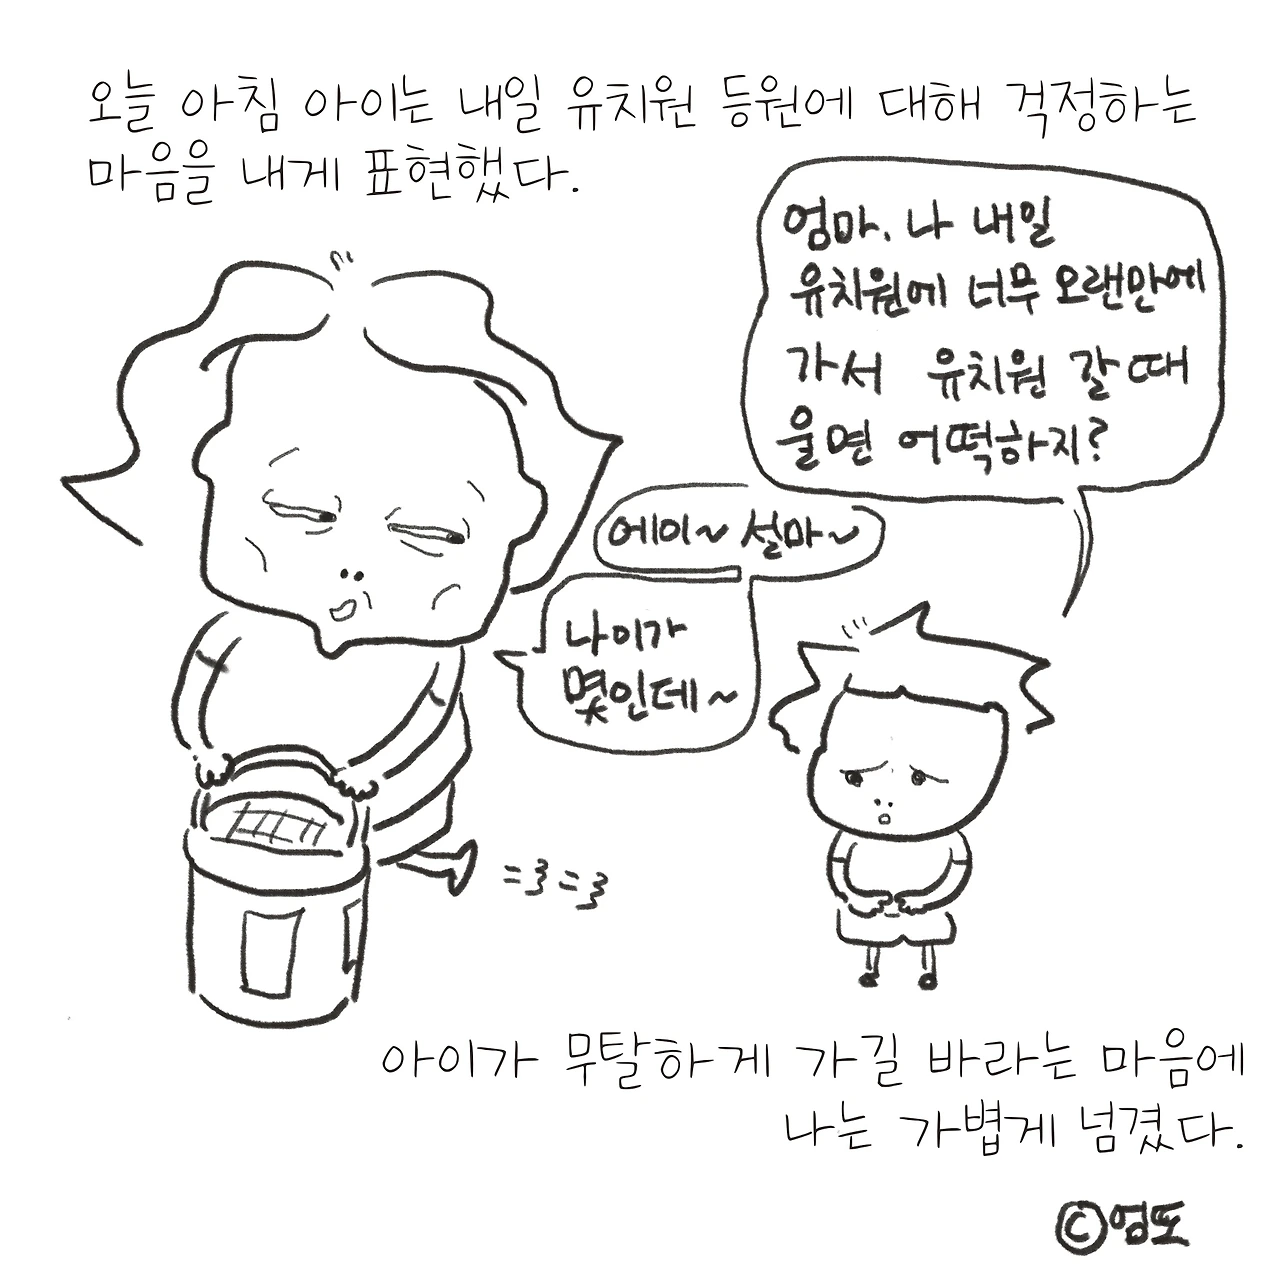 오늘 아침 아이는 내일 유치원 등원에 대해 걱정하는
마음을 내게 표현했다.
엄마. 나 내일
유치원에 너무 오랜만에
가서 유치원 갈 때
울면 어떡하지?
에이~ 설마~
나이가
몇인데~
아이가 무탈하게 가길 바라는 마음에
나는 가볍게 넘겼다.
©엄또